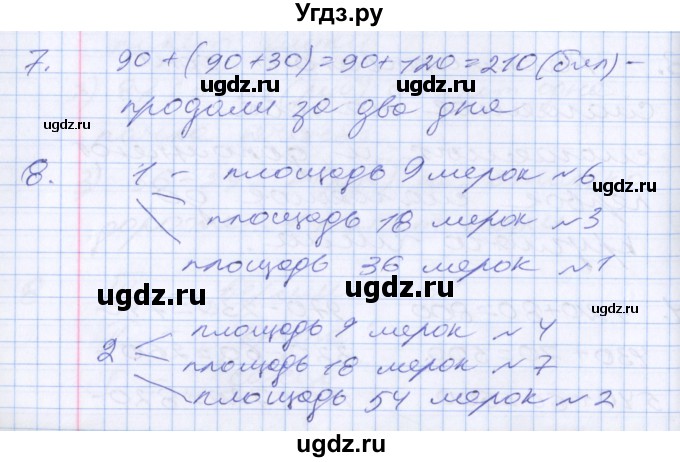 Угдз.ру
7. 90 + (90+30) = 90 + 120 = 210 (бил) -
ugdz.ru ugdz.ru
продали за два дня
ugdz.ru
8. 1 - площадь 9 мерок №6
ugdz.ru
площадь 18 мерок №3
ugdz.ru
площадь 36 мерок №1
ugdz.ru ugdz.ru
2 площадь 9 мерок №4
площадь 18 мерок №7
ugdz.ru ugdz.ru
площадь 54 мерок №2
ugdz.ru